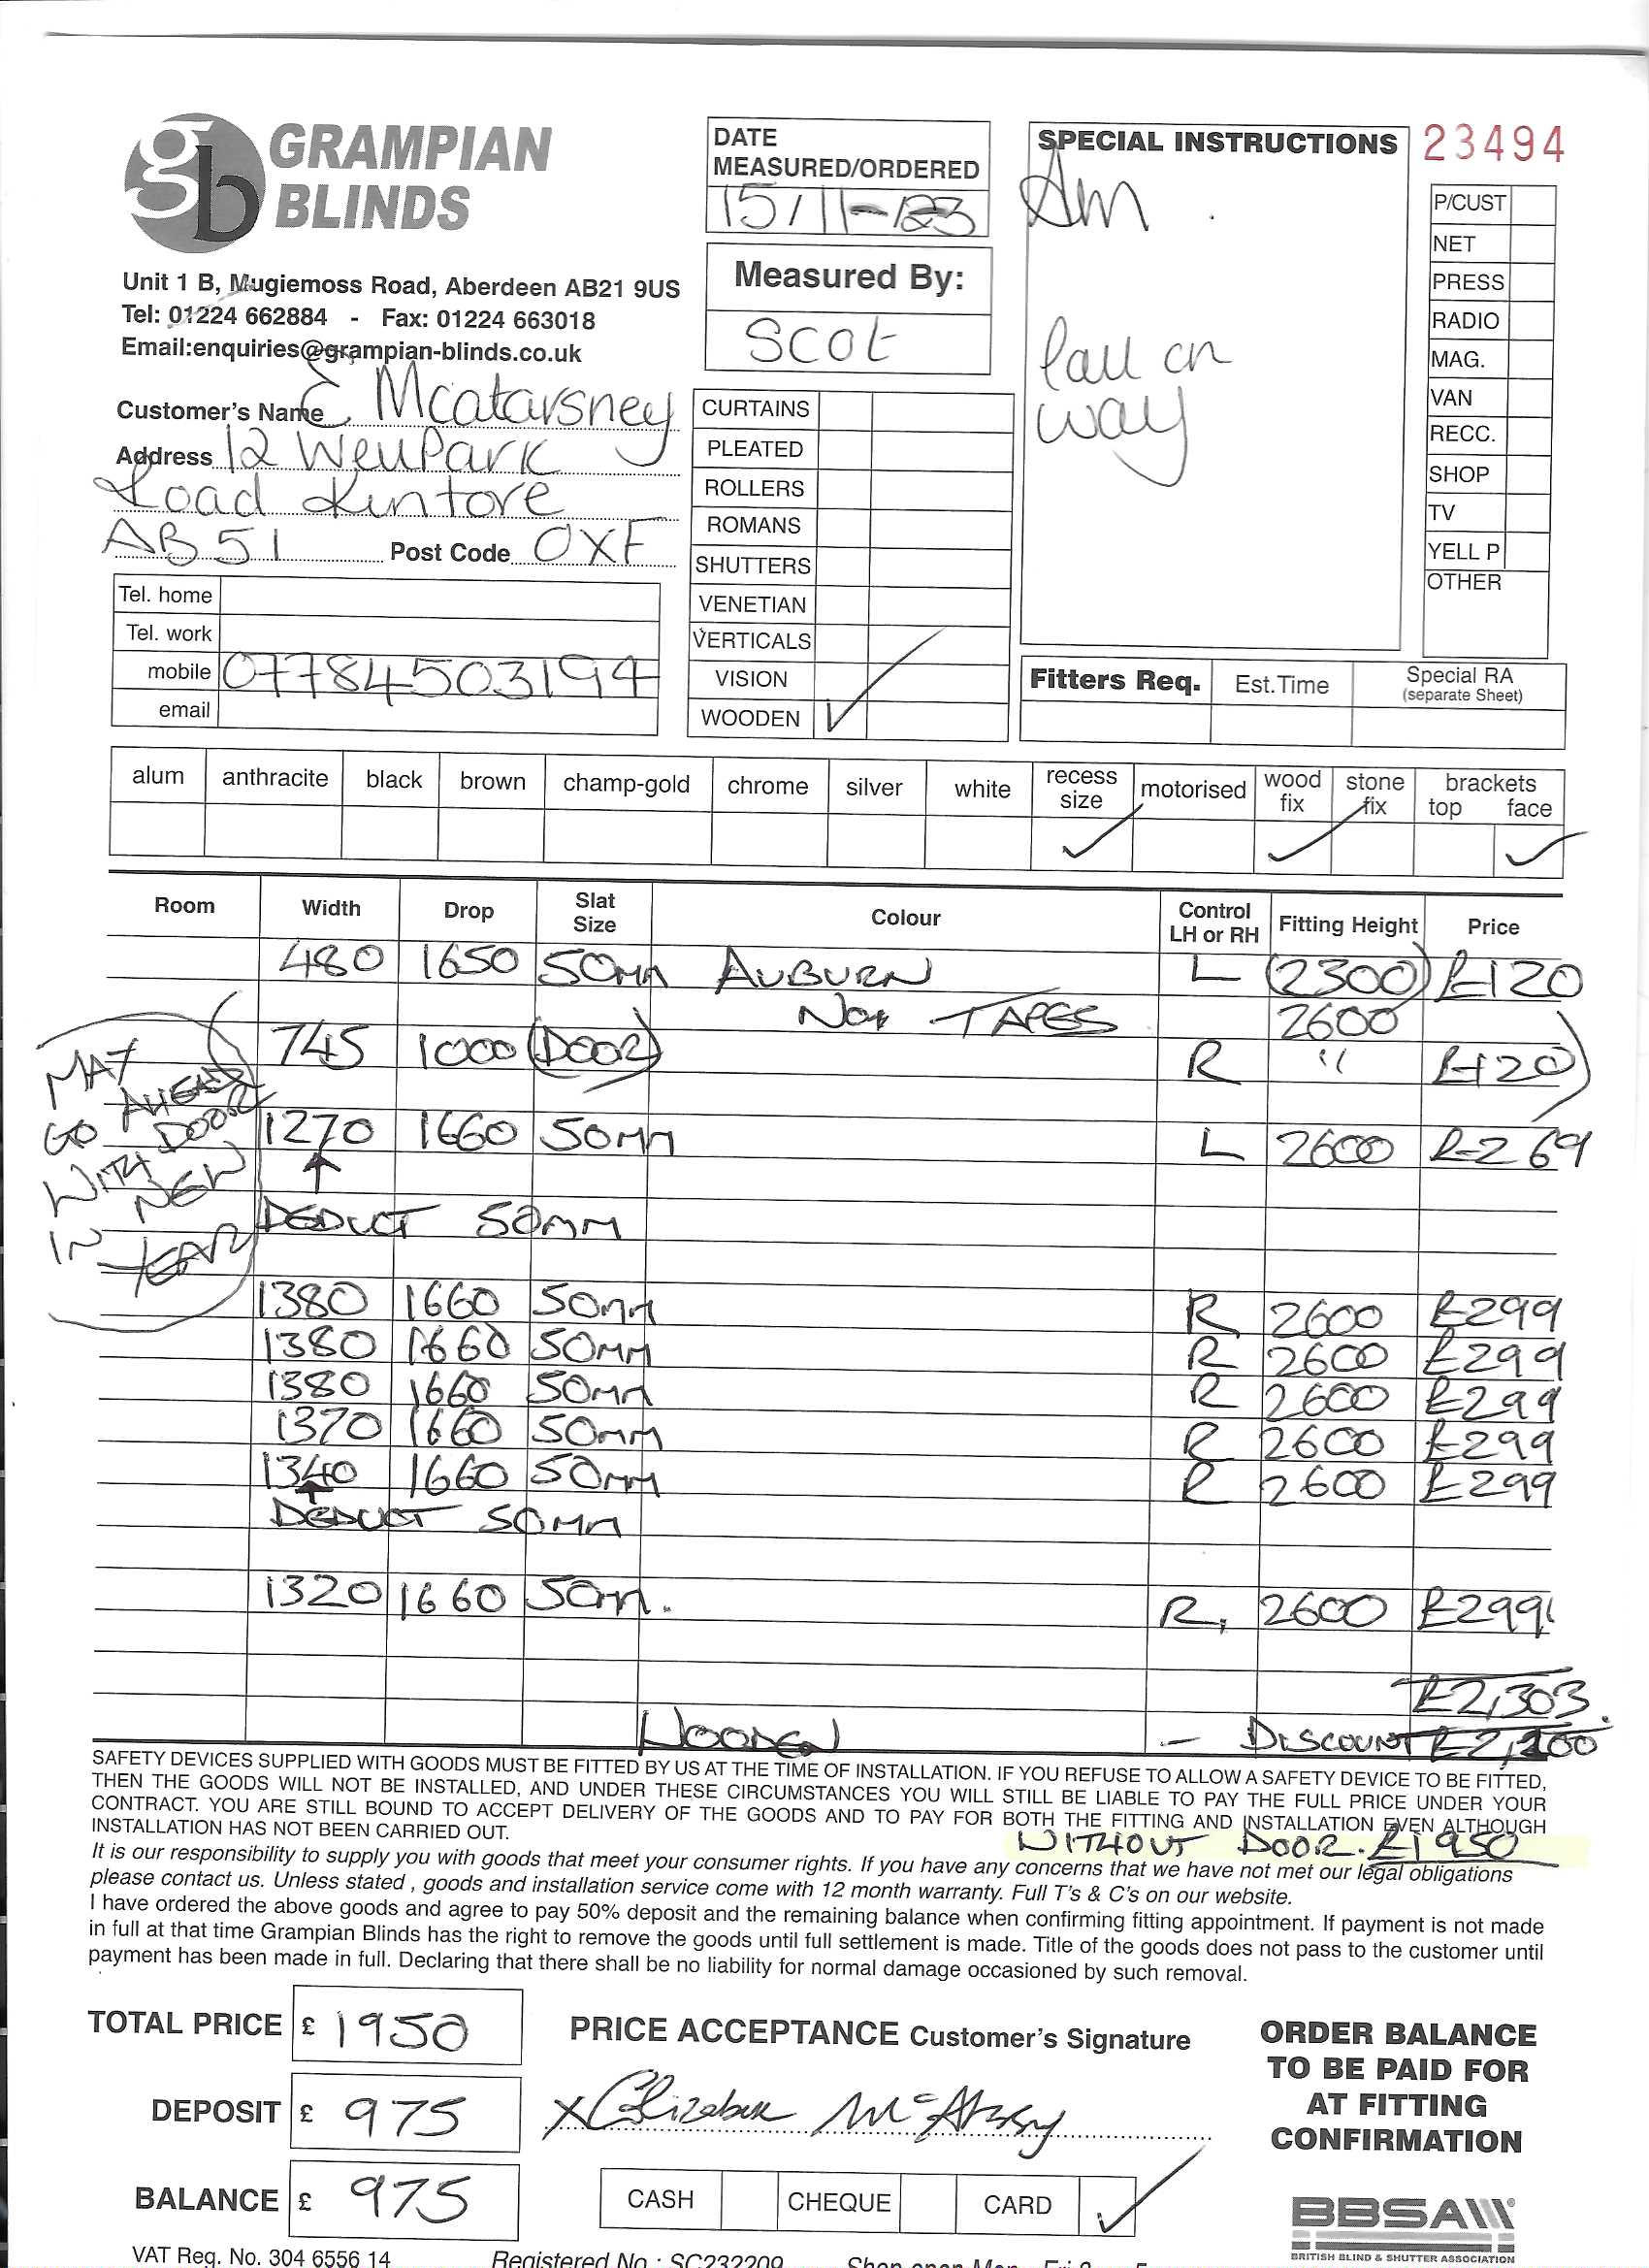 gb GRAMPIAN BLINDS
Unit 1 B, Mugiemoss Road, Aberdeen AB21 9US
Tel: 01224 662884 - Fax: 01224 663018
Email:enquiries@grampian-blinds.co.uk
DATE MEASURED/ORDERED
15/11/23
Measured By:
Scot
SPECIAL INSTRUCTIONS
Am
Call on
way
23494
P/CUST
NET
PRESS
RADIO
MAG.
VAN
RECC.
SHOP
TV
YELL P
OTHER
Customer's Name E Mcatarsney
Address 12 Weupark
Load Kintore
AB51 Post Code 0XF
Tel. home
Tel. work
mobile 07784503194
email
CURTAINS
PLEATED
ROLLERS
ROMANS
SHUTTERS
VENETIAN
VERTICALS
VISION
WOODEN ✓
Fitters Req. Est.Time Special RA (separate Sheet)
alum anthracite black brown champ-gold chrome silver white recess size motorised wood fix stone fix brackets top face
✓ ✓ ✓
Room Width Drop Slat Size Colour Control LH or RH Fitting Height Price
480 1650 50mm AUBURN L (2300) £120
TAPES 2600
745 1000 (DOOR) R " £120
MAY GO AHEAD WITH DOOR IN NEW YEAR
1270 1660 50mm L 2600 £269
DEDUCT 50MM
1380 1660 50mm R 2600 £299
1380 1660 50mm R 2600 £299
1380 1660 50mm R 2600 £299
1370 1660 50mm R 2600 £299
1340 1660 50mm R 2600 £299
DEDUCT 50MM
1320 1660 50m. R, 2600 £299
£2,303.
WOODEN - DISCOUNT £2,100
SAFETY DEVICES SUPPLIED WITH GOODS MUST BE FITTED BY US AT THE TIME OF INSTALLATION. IF YOU REFUSE TO ALLOW A SAFETY DEVICE TO BE FITTED,
THEN THE GOODS WILL NOT BE INSTALLED, AND UNDER THESE CIRCUMSTANCES YOU WILL STILL BE LIABLE TO PAY THE FULL PRICE UNDER YOUR
CONTRACT. YOU ARE STILL BOUND TO ACCEPT DELIVERY OF THE GOODS AND TO PAY FOR BOTH THE FITTING AND INSTALLATION EVEN ALTHOUGH
INSTALLATION HAS NOT BEEN CARRIED OUT.
WITHOUT DOOR. £1950
It is our responsibility to supply you with goods that meet your consumer rights. If you have any concerns that we have not met our legal obligations
please contact us. Unless stated , goods and installation service come with 12 month warranty. Full T's & C's on our website.
I have ordered the above goods and agree to pay 50% deposit and the remaining balance when confirming fitting appointment. If payment is not made
in full at that time Grampian Blinds has the right to remove the goods until full settlement is made. Title of the goods does not pass to the customer until
payment has been made in full. Declaring that there shall be no liability for normal damage occasioned by such removal.
TOTAL PRICE £ 1950
DEPOSIT £ 975
BALANCE £ 975
PRICE ACCEPTANCE Customer's Signature
x Elizabeth
CASH CHEQUE CARD ✓
ORDER BALANCE
TO BE PAID FOR
AT FITTING
CONFIRMATION
BBSA
BRITISH BLIND & SHUTTER ASSOCIATION
VAT Reg. No. 304 6556 14 Registered No.: SC232209